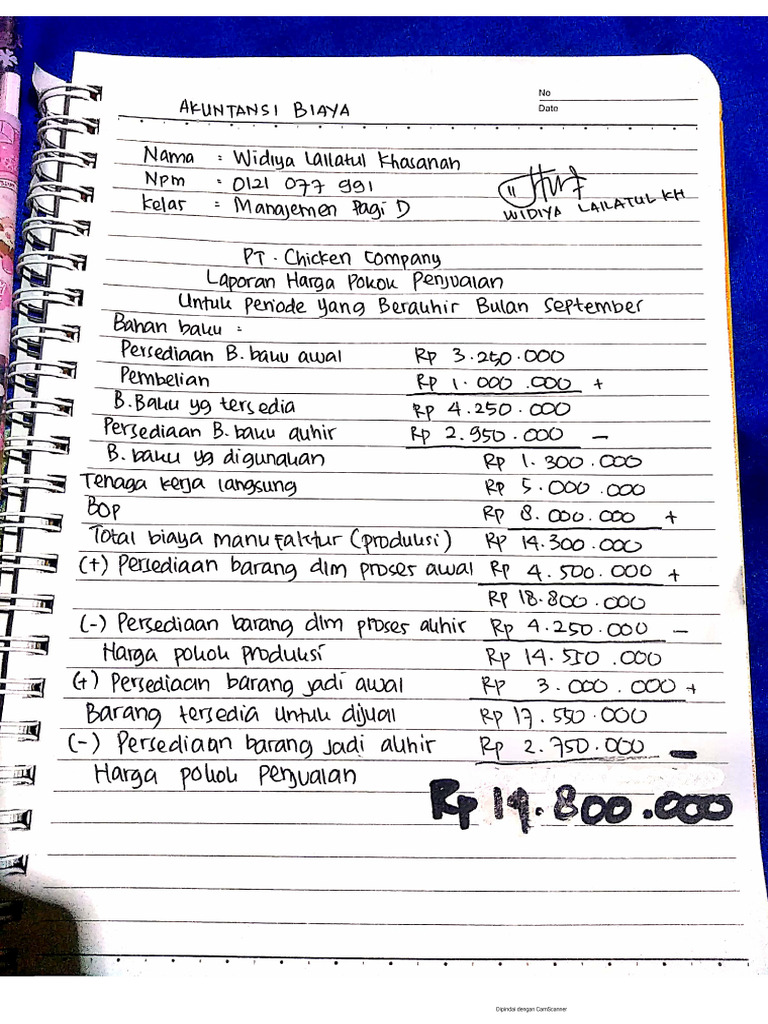 No
Date
AKUNTANSI BIAYA
Nama : Widiya Lailatul Khasanah
Npm : 0121 077 991
Kelas : Manajemen Pagi D
WIDIYA LAILATUL KH
PT. Chicken Company
Laporan Harga Pokok Penjualan
Untuk Periode yang Berakhir Bulan September
Bahan baku :
Persediaan B. baku awal Rp 3.250.000
Pembelian Rp 1.000.000 +
B. Baku yg tersedia Rp 4.250.000
Persediaan B. baku akhir Rp 2.950.000 -
B. baku yg digunakan Rp 1.300.000
Tenaga kerja langsung Rp 5.000.000
BOP Rp 8.000.000 +
Total biaya manufaktur (produksi) Rp 14.300.000
(+) Persediaan barang dlm proses awal Rp 4.500.000 +
Rp 18.800.000
(-) Persediaan barang dlm proses akhir Rp 4.250.000 -
Harga pokok produksi Rp 14.550.000
(+) Persediaan barang jadi awal Rp 3.000.000 +
Barang tersedia untuk dijual Rp 17.550.000
(-) Persediaan barang jadi akhir Rp 2.750.000 -
Harga pokok penjualan
Rp 14.800.000
Dipindai dengan CamScanner